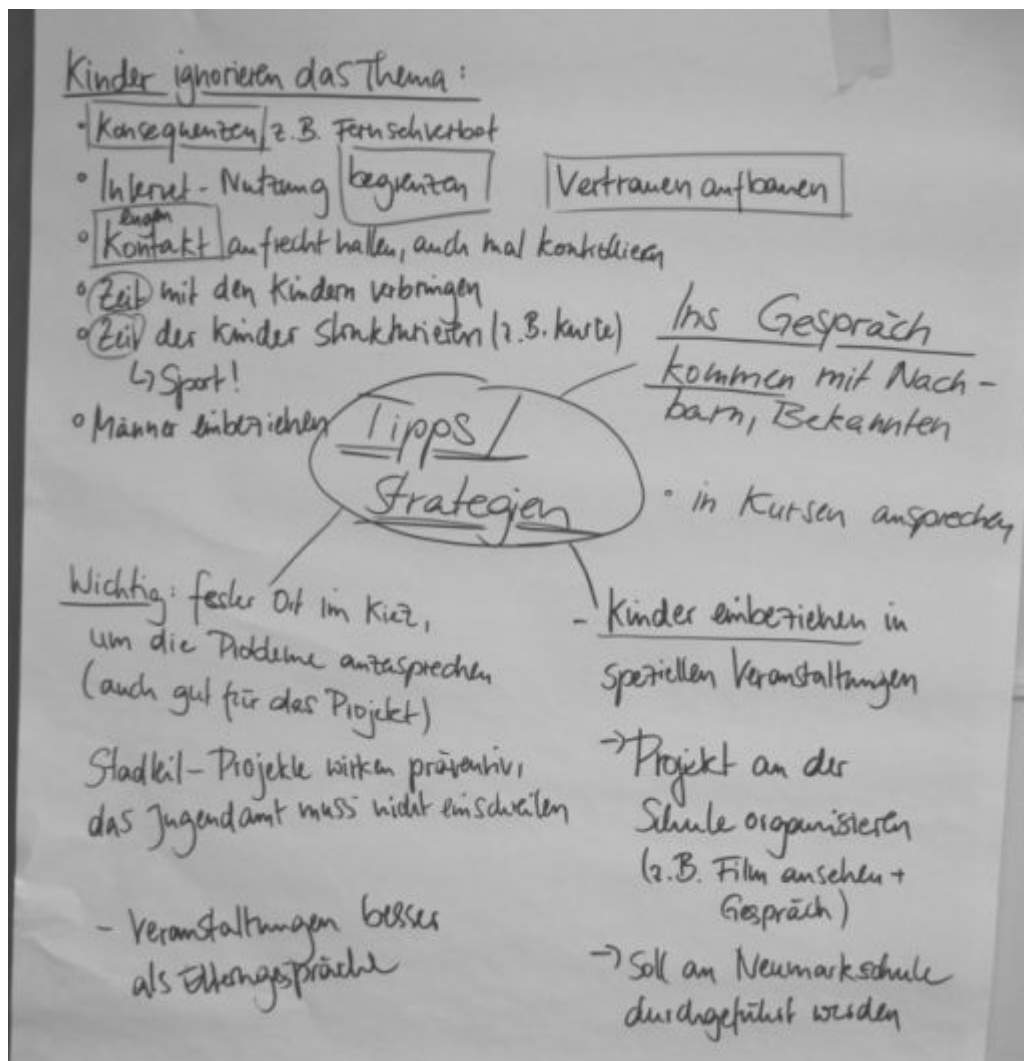 Kinder ignorieren das Thema:
• Konsequenzen, z.B. Fernsehverbot
• Internet-Nutzung begrenzen
Vertrauen aufbauen
engen
• Kontakt aufrecht halten, auch mal kontrollieren
• Zeit mit den Kindern verbringen
• Zeit der Kinder strukturieren (z.B. Kurse)
↳ Sport!
• Männer einbeziehen
Tipps /
Strategien
Ins Gespräch
kommen mit Nach-
barn, Bekannten
• in Kursen ansprechen
Wichtig: fester Ort im Kiez,
um die Probleme anzusprechen
(auch gut für das Projekt)
Stadtteil-Projekte wirken präventiv,
das Jugendamt muss nicht einschreiten
- Veranstaltungen besser
als Elterngespräche
- Kinder einbeziehen in
speziellen Veranstaltungen
→ Projekt an der
Schule organisieren
(z.B. Film ansehen +
Gespräch)
→ Soll an Neumarkschule
durchgeführt werden